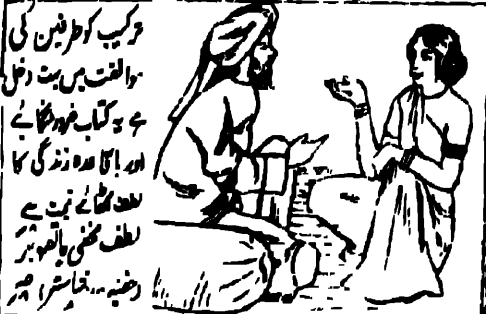 ترکیب کو طرفین کی
موافقت میں بہت دخل
ہے یہ کتاب ضرور منگائیے
اور باقاعدہ زندگی کا
لطف اٹھائیے قیمت ہے
لطف مخفی باتصویر
وغیرہ